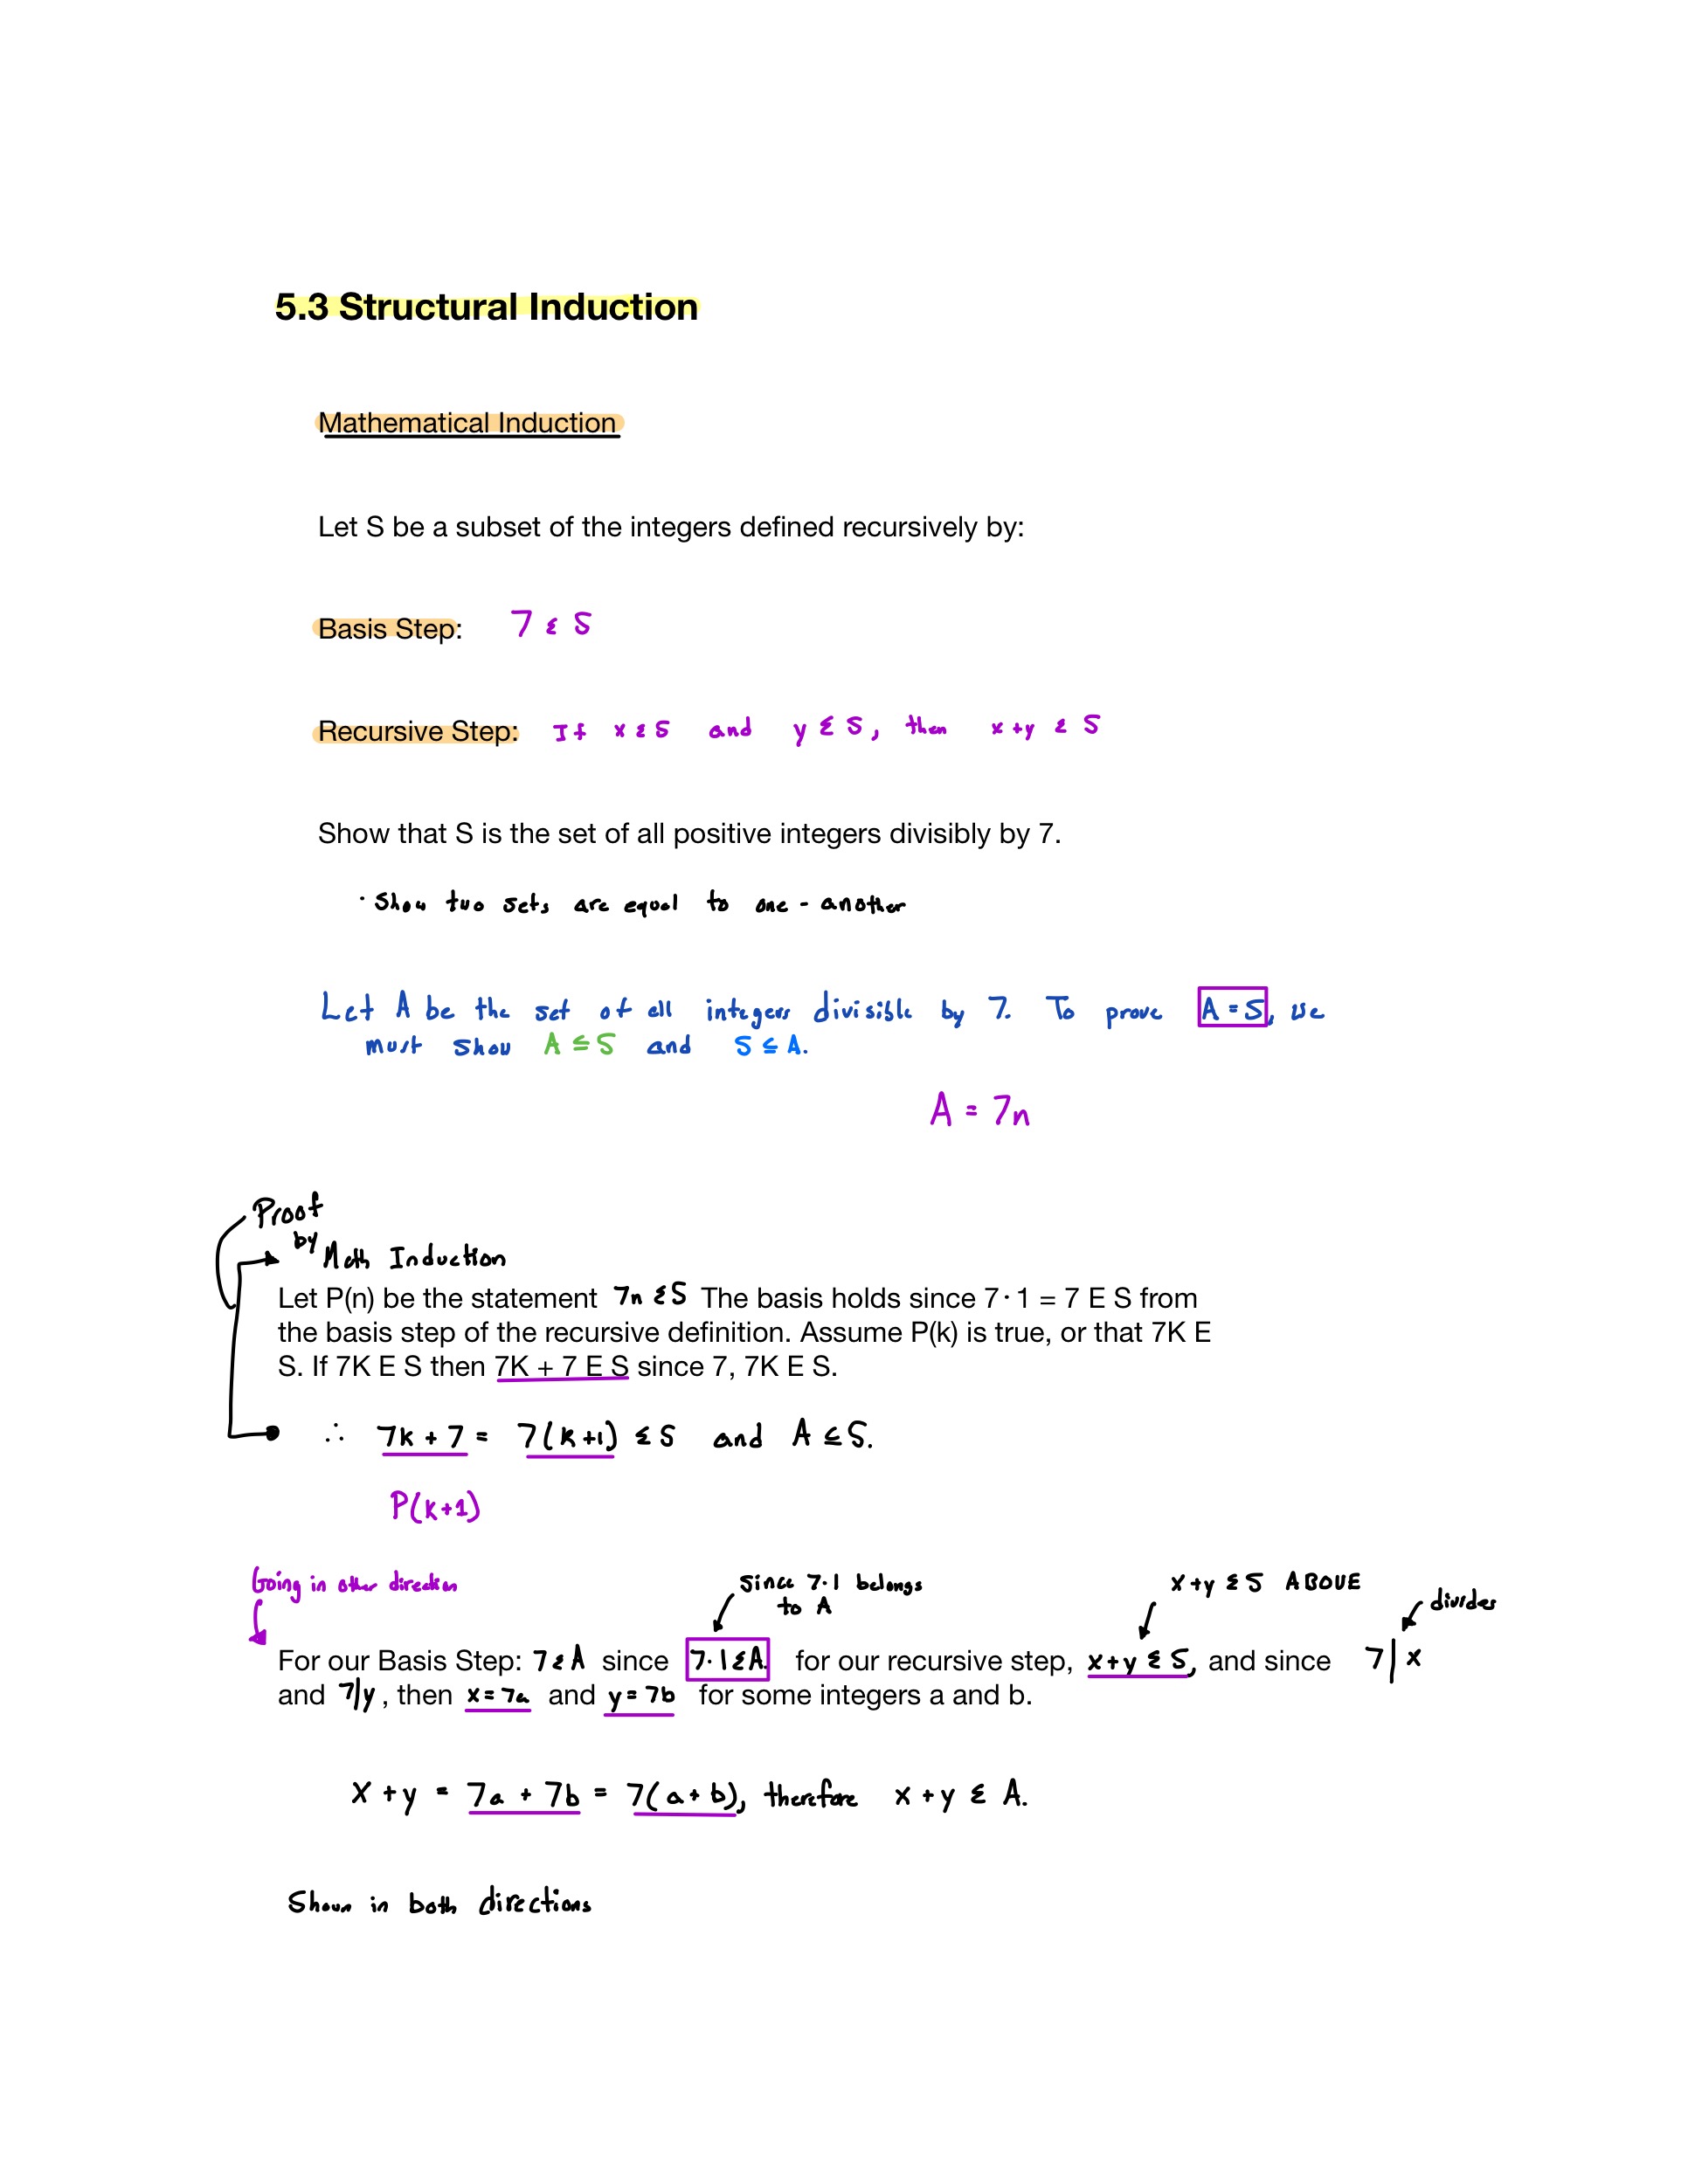 5.3 Structural Induction
Mathematical Induction
Let S be a subset of the integers defined recursively by:
Basis Step: 7 ε S
Recursive Step: If x ε S and y ε S, then x+y ε S
Show that S is the set of all positive integers divisibly by 7.
· Show two sets are equal to one-another
Let A be the set of all integers divisible by 7. To prove A = S, we
must show A ⊆ S and S ⊆ A.
A = 7n
Proof
by Math Induction
Let P(n) be the statement 7n ε S The basis holds since 7·1 = 7 E S from
the basis step of the recursive definition. Assume P(k) is true, or that 7K E
S. If 7K E S then 7K + 7 E S since 7, 7K E S.
∴ 7k + 7 = 7(k+1) ε S and A ⊆ S.
P(k+1)
Going in other direction
since 7·1 belongs
to A
x+y ε S ABOVE
divides
For our Basis Step: 7 ε A since 7·1 ε A. for our recursive step, x+y ε S, and since 7|x
and 7|y, then x=7a and y=7b for some integers a and b.
x + y = 7a + 7b = 7(a+b), therefore x+y ε A.
Shown in both directions